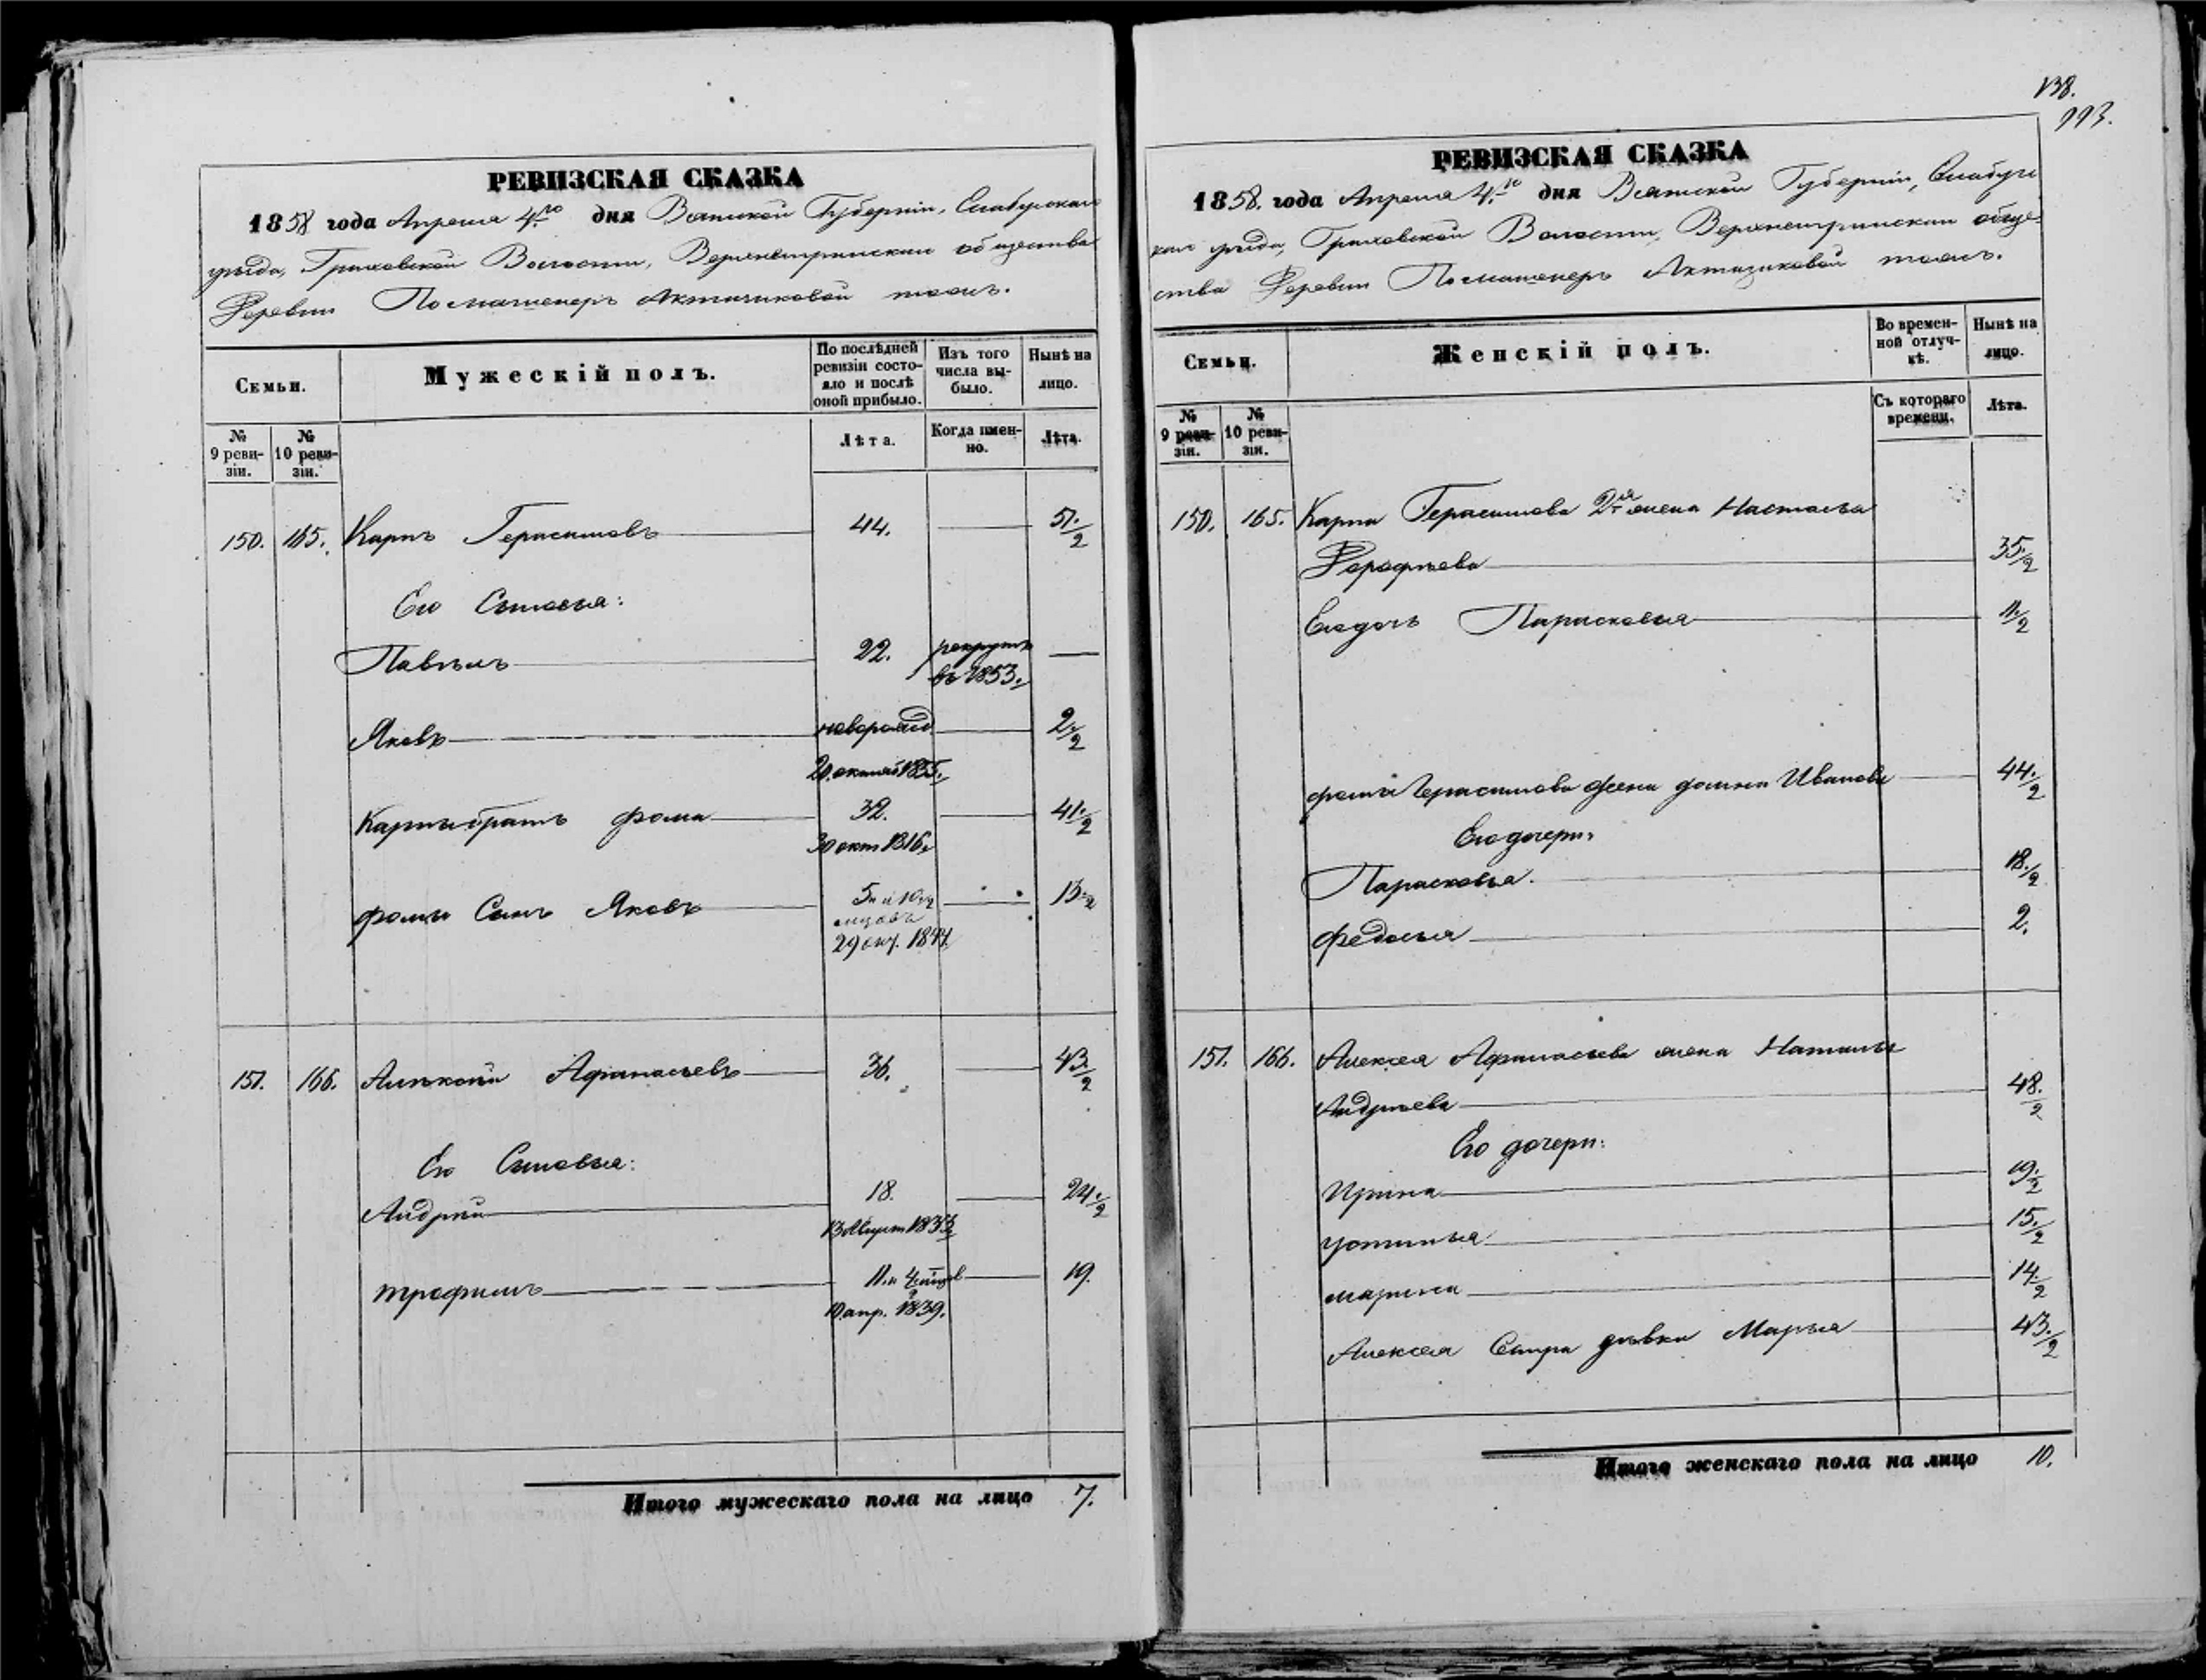 РЕВИЗСКАЯ СКАЗКА
1858 года Апреля 4.го дня Вятской Губерніи, Елабужскаго
уезда, Граховской Волости, общества
Деревни тожъ.
Семьи.
Мужескій полъ.
По послѣдней ревизіи состояло и послѣ оной прибыло.
Изъ того числа выбыло.
Нынѣ на лицо.
№ 9 ревизіи.
№ 10 ревизіи.
Лѣта.
Когда именно.
Лѣта.
150. 165. Карпъ Герасимовъ 44. 51./2
Его Сыновья:
Павелъ 22. рекрутъ
въ 1853.
Яковъ новорожд. 2./2
20. октяб 1855.
Карпа братъ Фома 32. 41./2
30 окт 1816.
Фомы Сынъ Яковъ 5 и 10 13./2
29 окт. 1844
151. 166. Алексѣй Афанасьевъ 36. 43./2
Его Сыновья:
Андрей 18. 24./2
13 Август 1833
трофимъ 11. и 4 19.
10 апр. 1839.
Итого мужескаго пола на лицо 7.
138.
993.
РЕВИЗСКАЯ СКАЗКА
1858. года Апреля 4.го дня Вятской Губерніи, Елабуж
скаго уезда, Граховской Волости, обще
ства Деревни тожъ.
Семьи.
Женскій полъ.
Во временной отлучкѣ.
Нынѣ на лицо.
№ 9 ревизіи.
№ 10 ревизіи.
Съ котораго времени.
Лѣта.
150. 165. Карпа Герасимова 2я жена Настасья
Дорофеева 35./2
Его дочь Парасковья 11./2
Фомы Герасимова жена домна Иванова 44./2
Его дочери:
Парасковья. 18./2
Федосья 2.
151. 166. Алексея Афанасьева жена Наталья
Андреева 48./2
Его дочери:
Ирина 19./2
устинья 15./2
марина 14./2
Алексея Сестра дѣвка Марья 43./2
Итого женскаго пола на лицо 10.